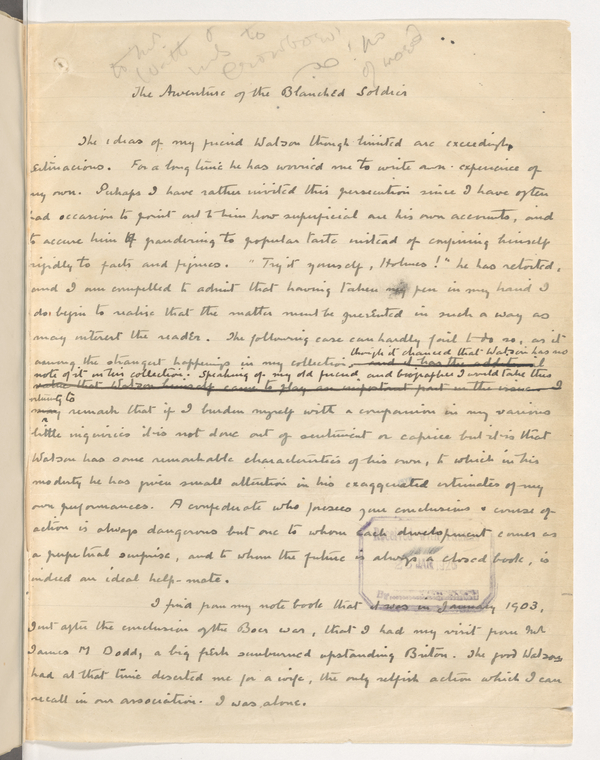 The Adventure of the Blanched Soldier
The ideas of my friend Watson though limited are exceedingly
pertinacious. For a long time he has worried me to write an experience of
my own. Perhaps I have rather invited this persecution since I have often
had occasion to point out to him how superficial are his own accounts, and
to accuse him of pandering to popular taste instead of confining himself
rigidly to facts and figures. "Try it yourself, Holmes!" he has retorted,
and I am compelled to admit that having taken my pen in my hand I
do begin to realise that the matter must be presented in such a way as
may interest the reader. The following case can hardly fail to do so, as it is
though it chanced that Watson has no
among the strangest happenings in my collection and it has the additional
note of it in his collection. Speaking of my old friend and biographer I would take this
value that Watson himself came to play an important part in the issue. I
opportunity to
may remark that if I burden myself with a companion in my various
little inquiries it is not done out of sentiment or caprice but it is that
Watson has some remarkable characteristics of his own, to which in his
modesty he has given small attention in his exaggerated estimates of my
own performances. A confederate who foresees your conclusions & course of
action is always dangerous but one to whom each development comes as
a perpetual surprise, and to whom the future is always a closed book, is
indeed an ideal help-mate.
I find from my note book that it was in January 1903,
just after the conclusion of the Boer war, that I had my visit from Mr
James M Dodd, a big fresh sunburned upstanding Briton. The good Watson
had at that time deserted me for a wife, the only selfish action which I can
recall in our association. I was alone.